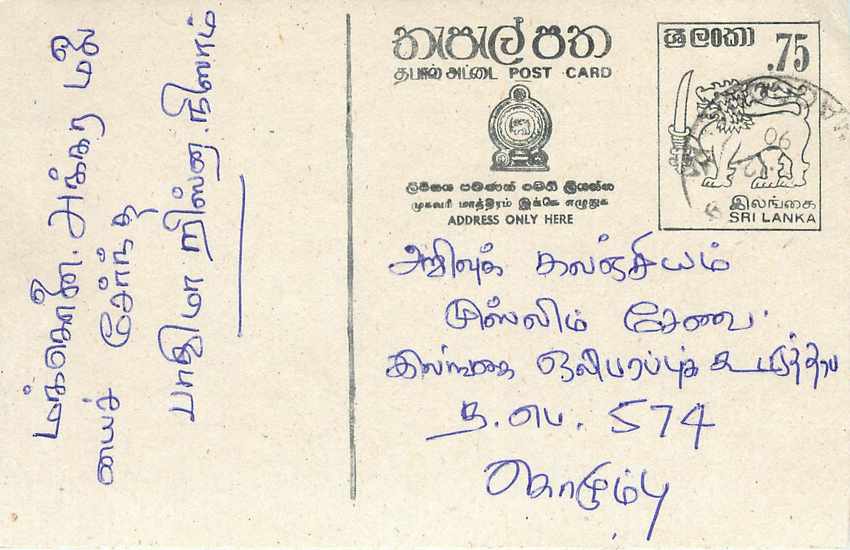 மக்கொன. அக்கர மலே
யைச் சேர்ந்த
பாதிமா றிஸ்னா நிஸாம்
තැපැල් පත
தபால் அட்டை POST CARD
ලිපිනය පමණක් මෙහි ලියන්න
முகவரி மாத்திரம் இங்கே எழுதுக
ADDRESS ONLY HERE
ශ්‍රී ලංකා
.75
இலங்கை
SRI LANKA
அறிவுக் களஞ்சியம்
முஸ்லிம் சேவை
இலங்கை ஒலிபரப்புக் கூட்டுத்தாப
த. பெ. 574
கொழும்பு